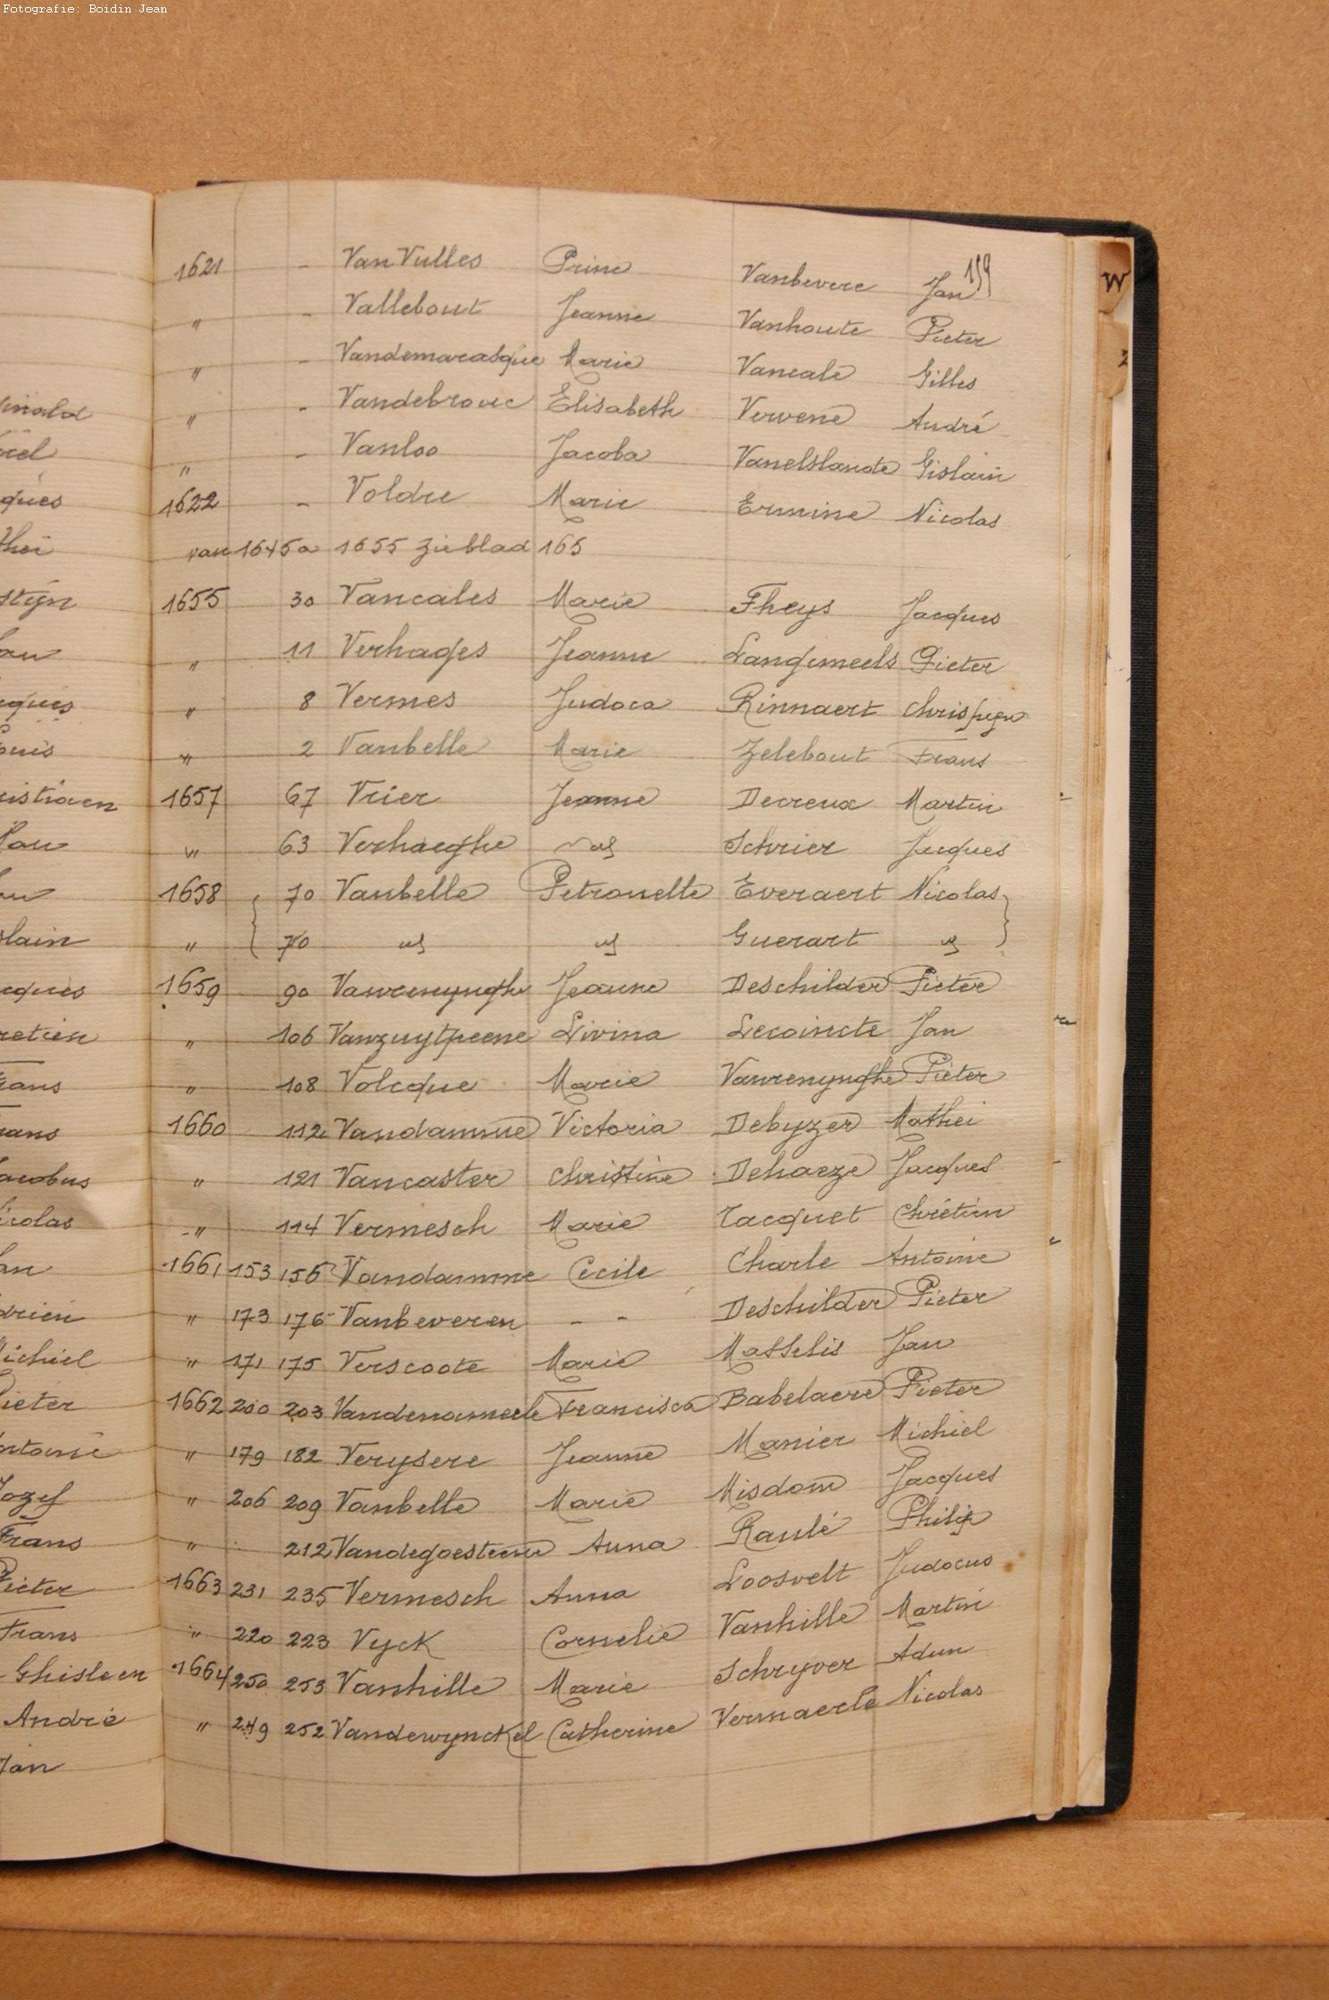 Fotografie: Boidin Jean
159
W
1621 - Van Vulles Prine Vanbevere Jan
" - Vallebout Jeanne Vanhoute Pieter
" - Vandemarasque Marie Vancale Gilles
" - Vandebrouc Elisabeth Vervene André
" - Vanloo Jacoba Vanelslande Gislain
1622 - Voldre Marie Ermine Nicolas
van 1645 a 1655 zie blad 165
1655 30 Vancales Marie Fheys Jacques
" 11 Verhages Jeanne Langemeels Pieter
" 8 Vermes Judoca Rinnaert Chrispyn
" 2 Vanbelle Marie Zelebout Frans
1657 67 Vrier Jeanne Decreux Martin
" 63 Verhaeghe Schrier Jacques
1658 70 Vanbelle Petronelle Everaert Nicolas
" 70 Guerart
1659 90 Vanrenynghe Jeanne Deschilder Pieter
" 106 Vanzuytpeene Livina Lecoincte Jan
" 108 Volcque Marie Vanrenynghe Pieter
1660 112 Vandamme Victoria Debyzer Mathei
" 121 Vancaster Christine Dehaeze Jacques
" 114 Vermesch Marie Jacquet Chrétien
1661 153 156 Vandamme Cécile Charle Antoine
" 173 176 Vanbeveren - - Deschilder Pieter
" 171 175 Verscoote Marie Masselis Jan
1662 200 203 Vandenameele Francisca Babelaere Pieter
" 179 182 Verysere Jeanne Manier Michiel
" 206 209 Vanbelle Marie Misdom Jacques
" 212 Vandegoesteene Anna Raulé Philip
1663 231 235 Vermesch Anna Loosvelt Judocus
" 220 223 Vyck Cornelie Vanhille Martin
1664 250 253 Vanhille Marie Schryver Adun
" 249 252 Vandewynckel Catherine Vermaerle Nicolas